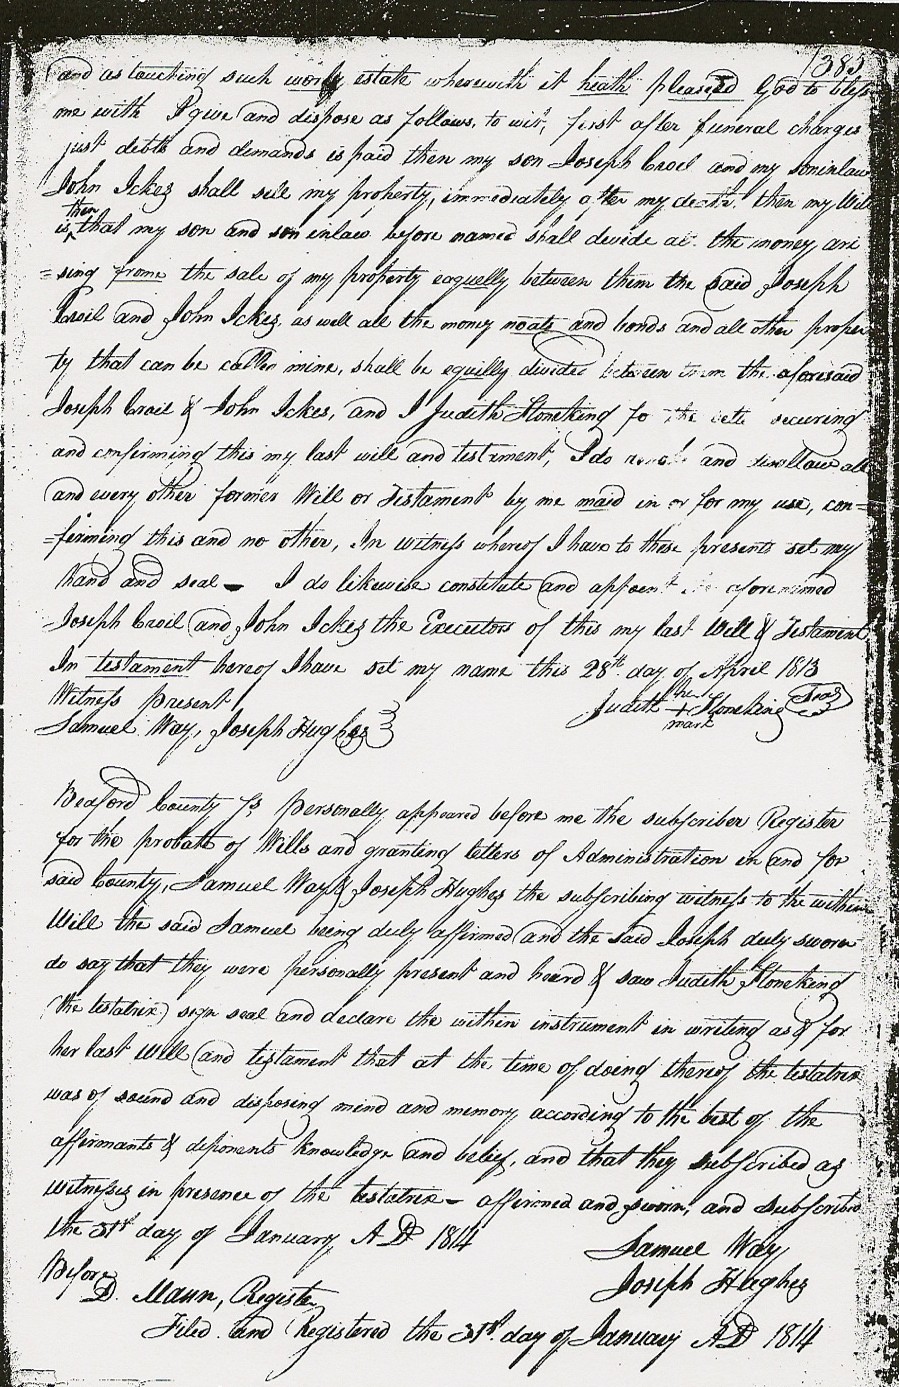 383
and as touching such worly estate wherewith it heath pleased God to bless
me with I give and dispose as follows, to wit, first after funeral charges
just debts and demands is paid then my son Joseph Croil and my soninlaw
John Ickes shall sell my property, immediately after my death. then my Will
then
is, that my son and son inlaw before named shall devide all the money ari
=sing frome the sale of my property eaquelly between them the said Joseph
Croil and John Ickes, as well all the money noats and bonds and all other proper
ty that can be called mine, shall be equilly divided between them the aforesaid
Joseph Croil & John Ickes, and I Judith Stoneking fo the securing
and confirming this my last will and testiment, I do and disallow all
and every other former Will or Testament by me maid in or for my use, con=
=firming this and no other, In witness whereof I have to these presents set my
hand and seal — I do likewise constitute and appoint the aforenamed
Joseph Croil and John Ickes the Executors of this my last Will & Testament
In testament hereof I have set my name this 28th day of April 1813
Witness present
Samuel Way, Joseph Hughes
Judith her + mark Stoneking Seal
Bedford County ss Personally appeared before me the subscriber Register
for the probate of Wills and granting letters of Administration in and for
said County, Samuel Way & Joseph Hughes the subscribing witness to the within
Will the said Samuel being duly affirmed and the said Joseph duly sworn
do say that they were personally present and heard & saw Judith Stoneking
(the testatrix) sign seal and declare the within instrument in writing as & for
her last Will and testament that at the time of doing thereof the testatrix
was of sound and disposing mind and memory according to the best of the
affirmants & deponents knowledge and belief, and that they subscribed as
witnesses in presence of the testatrix — affirmed and sworn, and subscribed
the 31st day of January A D 1814
Samuel Way
Joseph Hughes
Before
D. Mann, Register
Filed and Registered the 31st. day of January A D 1814